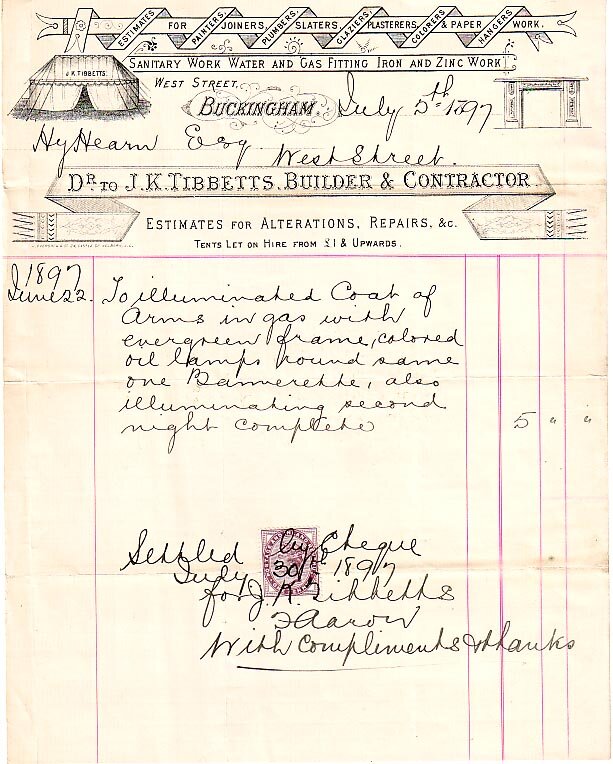 ESTIMATES FOR PAINTERS, JOINERS, PLUMBERS, SLATERS, GLAZIERS, PLASTERERS, COLORERS & PAPER HANGERS WORK.
SANITARY WORK WATER AND GAS FITTING IRON AND ZINC WORK
J.K.TIBBETTS.
WEST STREET,
BUCKINGHAM. July 5th 1897
Hy Hearn Esq
West Street.
DR TO J.K.TIBBETTS. BUILDER & CONTRACTOR.
ESTIMATES FOR ALTERATIONS, REPAIRS, &c.
TENTS LET ON HIRE FROM £1 & UPWARDS.
1897
June 22. To illuminated Coat of
Arms in gas with
evergreen frame, colored
oil lamps round same
one Bannerette, also
illuminating second
night complete 5 " "
Settled by Cheque
July 30/ 1897
for J. K. Tibbetts
With compliments & thanks